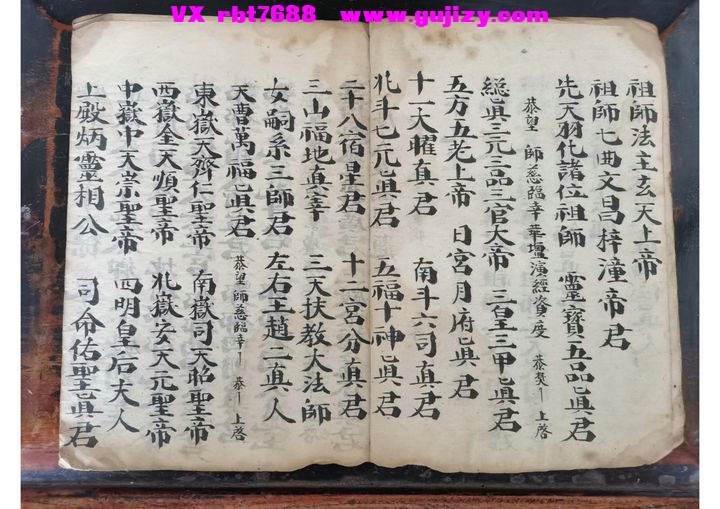 VX rbt7688 www.gujizy.com
祖師法主玄天上帝
祖師七曲文昌梓潼帝君
先天羽化諸位祖師 靈寶五品眞君
恭望 師慈臨幸華壇演經資度 恭焚 上啓
総眞三元三品三官大帝 三皇三甲眞君
五方五老上帝 日宮月府眞君
十一大曜真君 南斗六司真君
北斗七元眞君 五福十神眞君
二十八宿星君 十二宮分真君
三山福地真宰 三天扶教大法師
女嗣系三師君 左右王趙二真人
天曹萬福眞君 恭望師慈臨幸 恭 上啓
東嶽天齊仁聖帝 南嶽司天昭聖帝
西嶽金天順聖帝 北嶽安天元聖帝
中嶽中天崇聖帝 四明皇后夫人
上殿炳靈相公 司命佑聖眞君